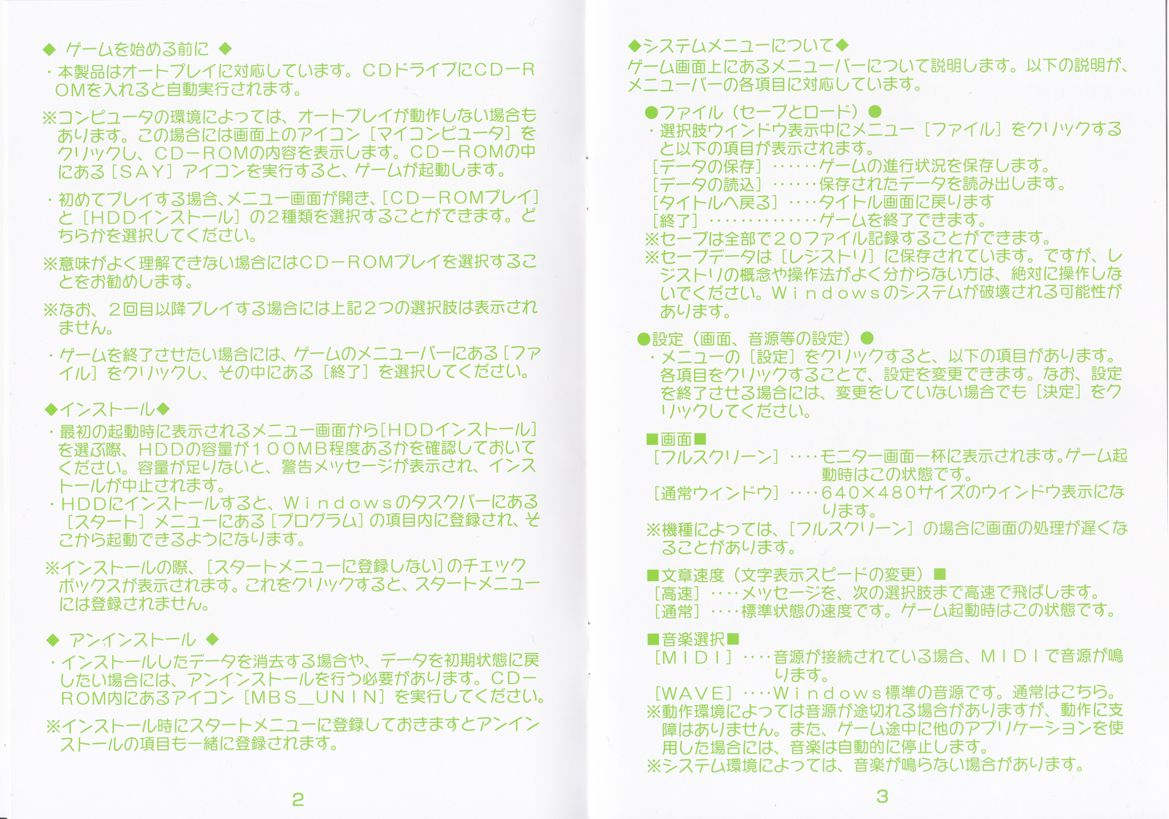 ◆ ゲームを始める前に ◆
・本製品はオートプレイに対応しています。CDドライブにCD－R
OMを入れると自動実行されます。
※コンピュータの環境によっては、オートプレイが動作しない場合も
あります。この場合には画面上のアイコン［マイコンピュータ］を
クリックし、CD－ROMの内容を表示します。CD－ROMの中
にある［SAY］アイコンを実行すると、ゲームが起動します。
・初めてプレイする場合、メニュー画面が開き、［CD－ROMプレイ］
と［HDDインストール］の2種類を選択することができます。ど
ちらかを選択してください。
※意味がよく理解できない場合にはCD－ROMプレイを選択するこ
とをお勧めします。
※なお、2回目以降プレイする場合には上記2つの選択肢は表示され
ません。
・ゲームを終了させたい場合には、ゲームのメニューバーにある［ファ
イル］をクリックし、その中にある［終了］を選択してください。
◆インストール◆
・最初の起動時に表示されるメニュー画面から［HDDインストール］
を選ぶ際、HDDの容量が100MB程度あるかを確認しておいて
ください。容量が足りないと、警告メッセージが表示され、インス
トールが中止されます。
・HDDにインストールすると、Windowsのタスクバーにある
［スタート］メニューにある［プログラム］の項目内に登録され、そ
こから起動できるようになります。
※インストールの際、［スタートメニューに登録しない］のチェック
ボックスが表示されます。これをクリックすると、スタートメニュー
には登録されません。
◆ アンインストール ◆
・インストールしたデータを消去する場合や、データを初期状態に戻
したい場合には、アンインストールを行う必要があります。CD－
ROM内にあるアイコン［MBS＿UNIN］を実行してください。
※インストール時にスタートメニューに登録しておきますとアンイン
ストールの項目も一緒に登録されます。
2
◆システムメニューについて◆
ゲーム画面上にあるメニューバーについて説明します。以下の説明が、
メニューバーの各項目に対応しています。
●ファイル（セーブとロード）●
・選択肢ウインドウ表示中にメニュー［ファイル］をクリックする
と以下の項目が表示されます。
［データの保存］‥‥‥ゲームの進行状況を保存します。
［データの読込］‥‥‥保存されたデータを読み出します。
［タイトルへ戻る］‥‥タイトル画面に戻ります
［終了］‥‥‥‥‥‥‥ゲームを終了できます。
※セーブは全部で20ファイル記録することができます。
※セーブデータは［レジストリ］に保存されています。ですが、レ
ジストリの概念や操作法がよく分からない方は、絶対に操作しな
いでください。Windowsのシステムが破壊される可能性が
あります。
●設定（画面、音源等の設定）●
・メニューの［設定］をクリックすると、以下の項目があります。
各項目をクリックすることで、設定を変更できます。なお、設定
を終了させる場合には、変更をしていない場合でも［決定］をク
リックしてください。
■画面■
［フルスクリーン］‥‥モニター画面一杯に表示されます。ゲーム起
動時はこの状態です。
［通常ウインドウ］‥‥640×480サイズのウィンドウ表示にな
ります。
※機種によっては、［フルスクリーン］の場合に画面の処理が遅くな
ることがあります。
■文章速度（文字表示スピードの変更）■
［高速］‥‥メッセージを、次の選択肢まで高速で飛ばします。
［通常］‥‥標準状態の速度です。ゲーム起動時はこの状態です。
■音楽選択■
［MIDI］‥‥音源が接続されている場合、MIDIで音源が鳴
ります。
［WAVE］‥‥Windows標準の音源です。通常はこちら。
※動作環境によっては音源が途切れる場合がありますが、動作に支
障はありません。また、ゲーム途中に他のアプリケーションを使
用した場合には、音楽は自動的に停止します。
※システム環境によっては、音楽が鳴らない場合があります。
3